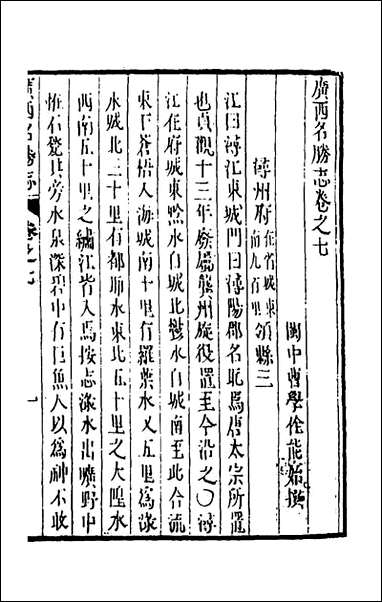 廣西名勝志卷之七
閩中曹學佺能始撰
潯州府在省城東南九百里領縣三
江曰潯江東城門曰潯陽郡名耻焉唐太宗所置
也貞觀十三年廢屬龔州旋役置至今沿之〇潯
江在府城東黔水自城北鬱水自城南至此合流
東下蒼梧入海城南十里有羅葉水又五里為淥
水城北三十里有都聊水東北五十里之大隍水
西南五十里之繡江皆入焉按志淥水出曠野中
惟石甃其旁水泉深碧中有巨魚人以為神不敢
廣西名勝志 卷之七 一